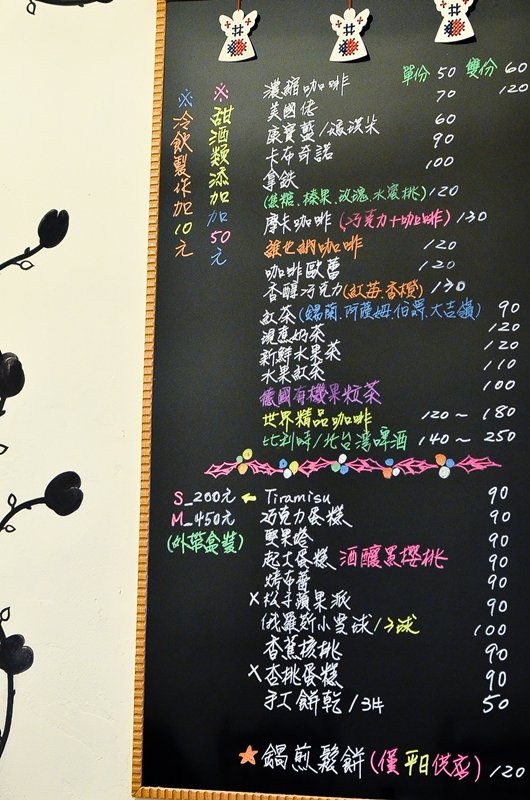 單份 50 雙份 60
濃縮咖啡 120
美國佬 70
康寶藍/瑪淇朵 60
卡布奇諾 90
拿鐵 100
(焦糖.榛果.玫瑰.水蜜桃) 120
摩卡咖啡 (巧克力+咖啡) 130
維也納咖啡 120
咖啡歐蕾 120
香醇巧克力(紅莓.香橙) 130
紅茶(錫蘭.阿薩姆.伯爵.大吉嶺) 90
現煮奶茶 120
新鮮水果茶 120
水果紅茶 110
德國有機果粒茶 100
世界精品咖啡 120~180
比利時/北台灣啤酒 140~250
※甜酒類添加加50元
※冷飲製作加10元
S_200元 ← Tiramisu 90
M_450元 巧克力蛋糕 90
(外帶盒裝) 堅果塔 90
起士蛋糕 酒釀黑櫻桃 90
烤布蕾 90
×松子蘋果派 90
俄羅斯小雪球/3球 100
香蕉核桃 90
×杏桃蛋糕 90
手工餅乾/3片 50
★鍋煎鬆餅(僅平日供應) 120